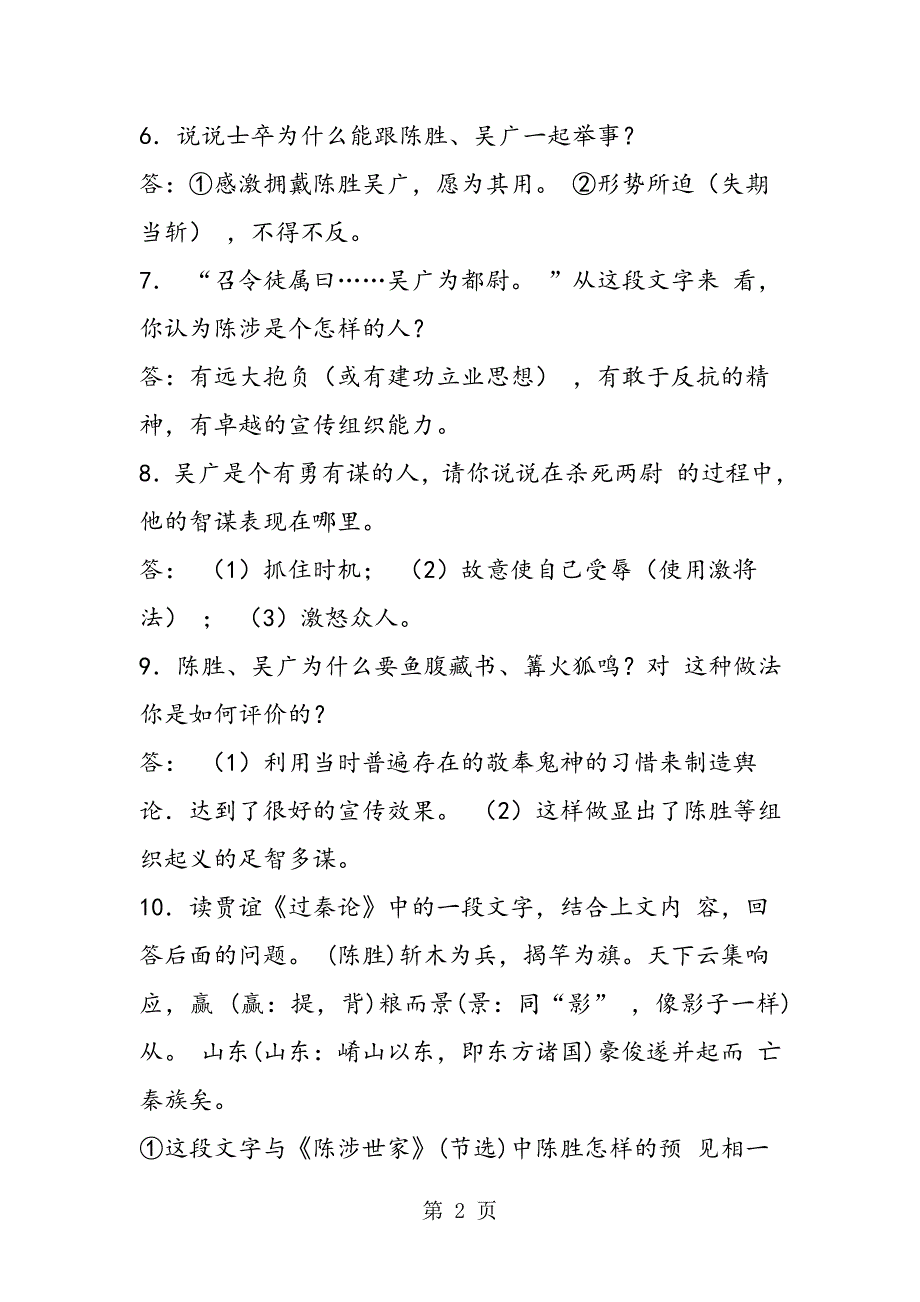 6．说说士卒为什么能跟陈胜、吴广一起举事？
答：①感激拥戴陈胜吴广，愿为其用。 ②形势所迫（失期
当斩） ，不得不反。
7． “召令徒属曰……吴广为都尉。 ”从这段文字来 看，
你认为陈涉是个怎样的人？
答：有远大抱负（或有建功立业思想） ，有敢于反抗的精
神，有卓越的宣传组织能力。
8．吴广是个有勇有谋的人，请你说说在杀死两尉 的过程中，
他的智谋表现在哪里。
答： （1）抓住时机； （2）故意使自己受辱（使用激将
法） ； （3）激怒众人。
9．陈胜、吴广为什么要鱼腹藏书、篝火狐鸣？对 这种做法
你是如何评价的？
答： （1）利用当时普遍存在的敬奉鬼神的习惜来制造舆
论．达到了很好的宣传效果。 （2）这样做显出了陈胜等组
织起义的足智多谋。
10．读贾谊《过秦论》中的一段文字，结合上文内 容，回
答后面的问题。 (陈胜)斩木为兵，揭竿为旗。天下云集响
应，赢 (赢：提，背)粮而景(景：同“影” ，像影子一样)
从。 山东(山东：崤山以东，即东方诸国)豪俊遂并起而 亡
秦族矣。
①这段文字与《陈涉世家》(节选)中陈胜怎样的预 见相一
第 2 页